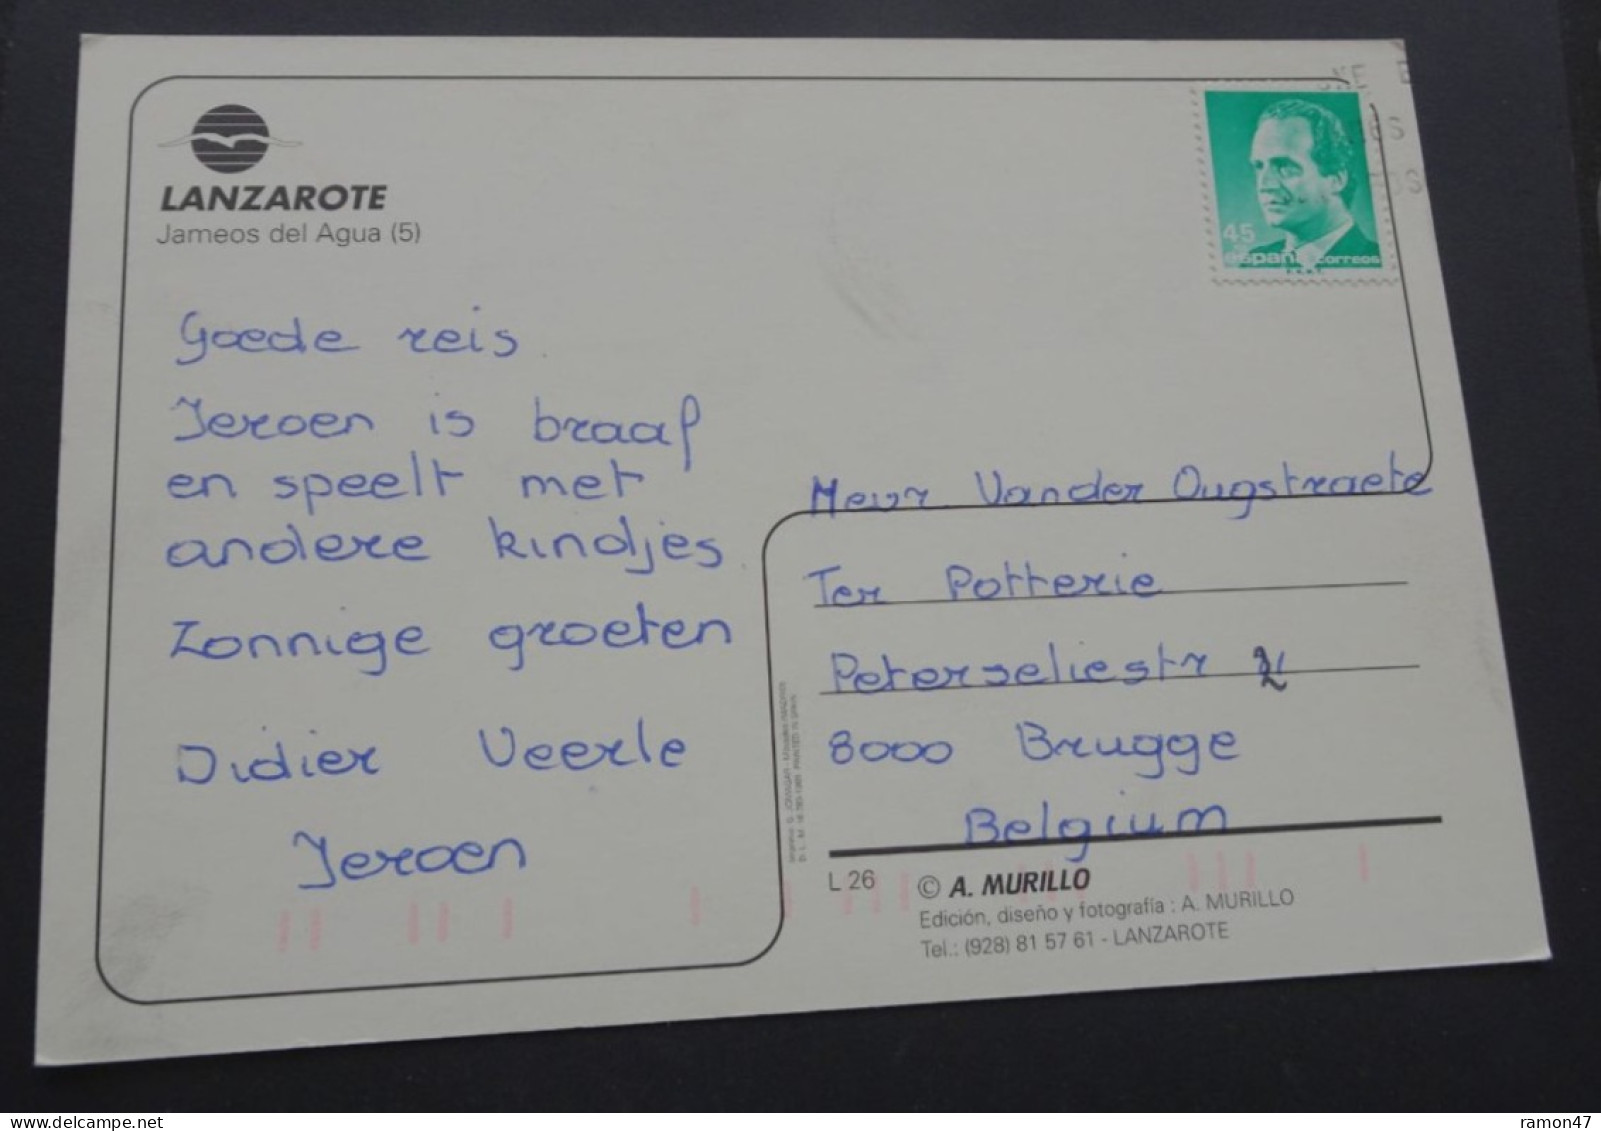 LANZAROTE
Jameos del Agua (5)
Goede reis
Jeroen is braaf
en speelt met
andere kindjes
Zonnige groeten
Didier Veerle
Jeroen
45
españa correos
Mevr. Vander Ougstraete
Ter Potterie
Peterseliestr
8000 Brugge
Belgium
L 26
© A. MURILLO
Edición, diseño y fotografía : A. MURILLO
Tel.: (928) 81 57 61 - LANZAROTE
www.delcampe.net
ramon47